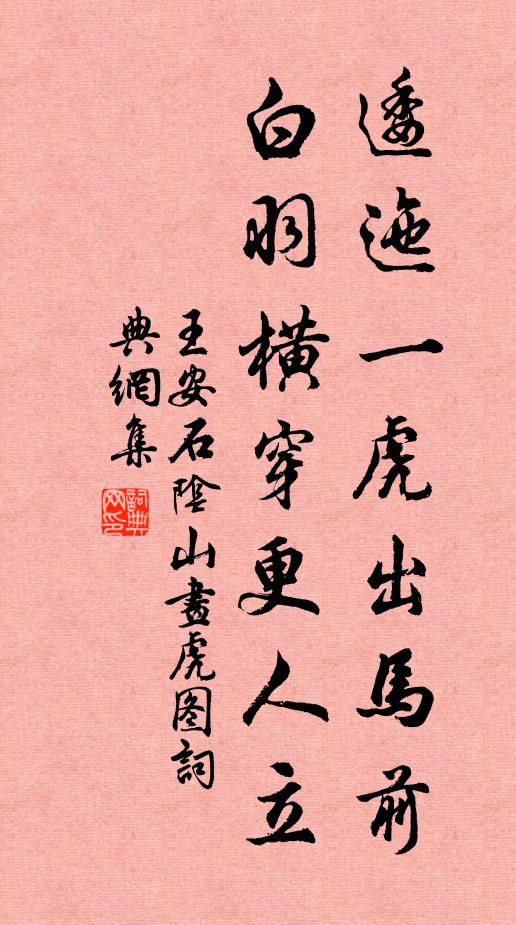 逶迤一虎出馬前
白羽橫穿更人立
王安石陰山畫虎图詞
典網集
詞典網印